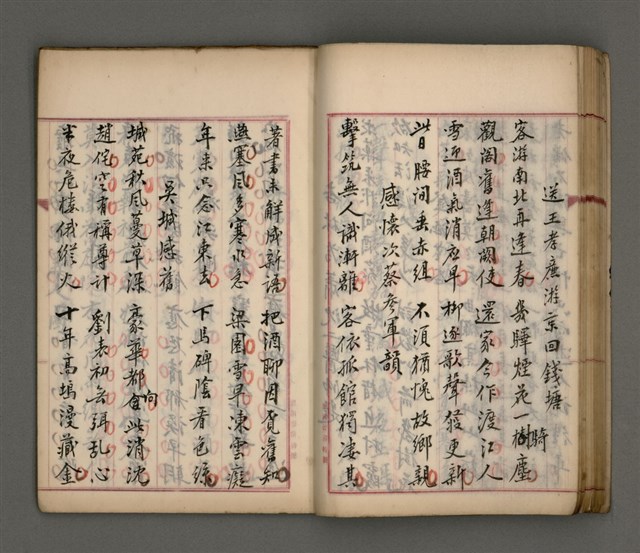 送王孝廉游京回錢塘
客游南北再逢春 幾驛煙花一樹塵
騎
觀闕舊逢朝闕使 還家今作渡江人
雪迎酒氣消應早 柳逐歌聲發更新
昔日腰間垂赤組 不須猶愧故鄉親
感懷次蔡參軍韻
擊筑無人識漸離 客依孤館獨凄其
著書未解成新語 把酒聊因覓舊知
燕塞風多寒水急 梁園雪早凍雪癡
年來只念江東去 下馬碑陰看色絲
吳城感舊
城苑秋風蔓草深 豪華都會此消沈
向
趙佗空有稱尊計 劉表初無弭亂心
半夜危樓俄縱火 十年高塢漫藏金